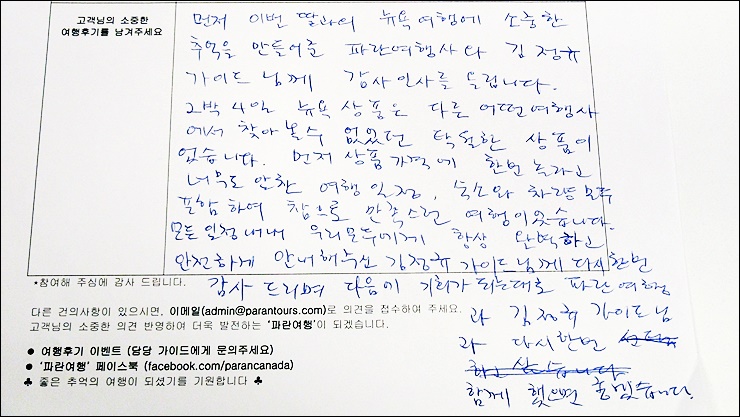 고객님의 소중한
여행후기를 남겨주세요
먼저 이번 딸과의 뉴욕여행에 소중한
추억을 만들어준 파란여행사와 김정규
가이드님께 감사인사를 드립니다.
2박 4일 뉴욕 상품은 다른 어떤여행사
에서 찾아볼수 없었던 탁월한 상품이
었습니다. 먼저 상품가격에 한번 놀라고
너무도 알찬 여행일정, 숙소와 차량 모두
포함하여 참으로 만족스런 여행이었습니다.
모든일정내내 우리모두에게 항상 완벽하고
안전하게 안내해주신 김정규 가이드님께 다시한번
감사드리며 다음이 기회가 되는대로 파란여행
과 김정규 가이드님
과 다시한번
하고 싶습니다
함께 했으면 좋겠습니다.
*참여해 주심에 감사 드립니다.
다른 건의사항이 있으시면, 이메일(admin@parantours.com)로 의견을 접수하여 주세요.
고객님의 소중한 의견 반영하여 더욱 발전하는 '파란여행'이 되겠습니다.
● 여행후기 이벤트 (담당 가이드에게 문의주세요)
● '파란여행' 페이스북 (facebook.com/parancanada)
♣ 좋은 추억의 여행이 되셨기를 기원합니다 ♣